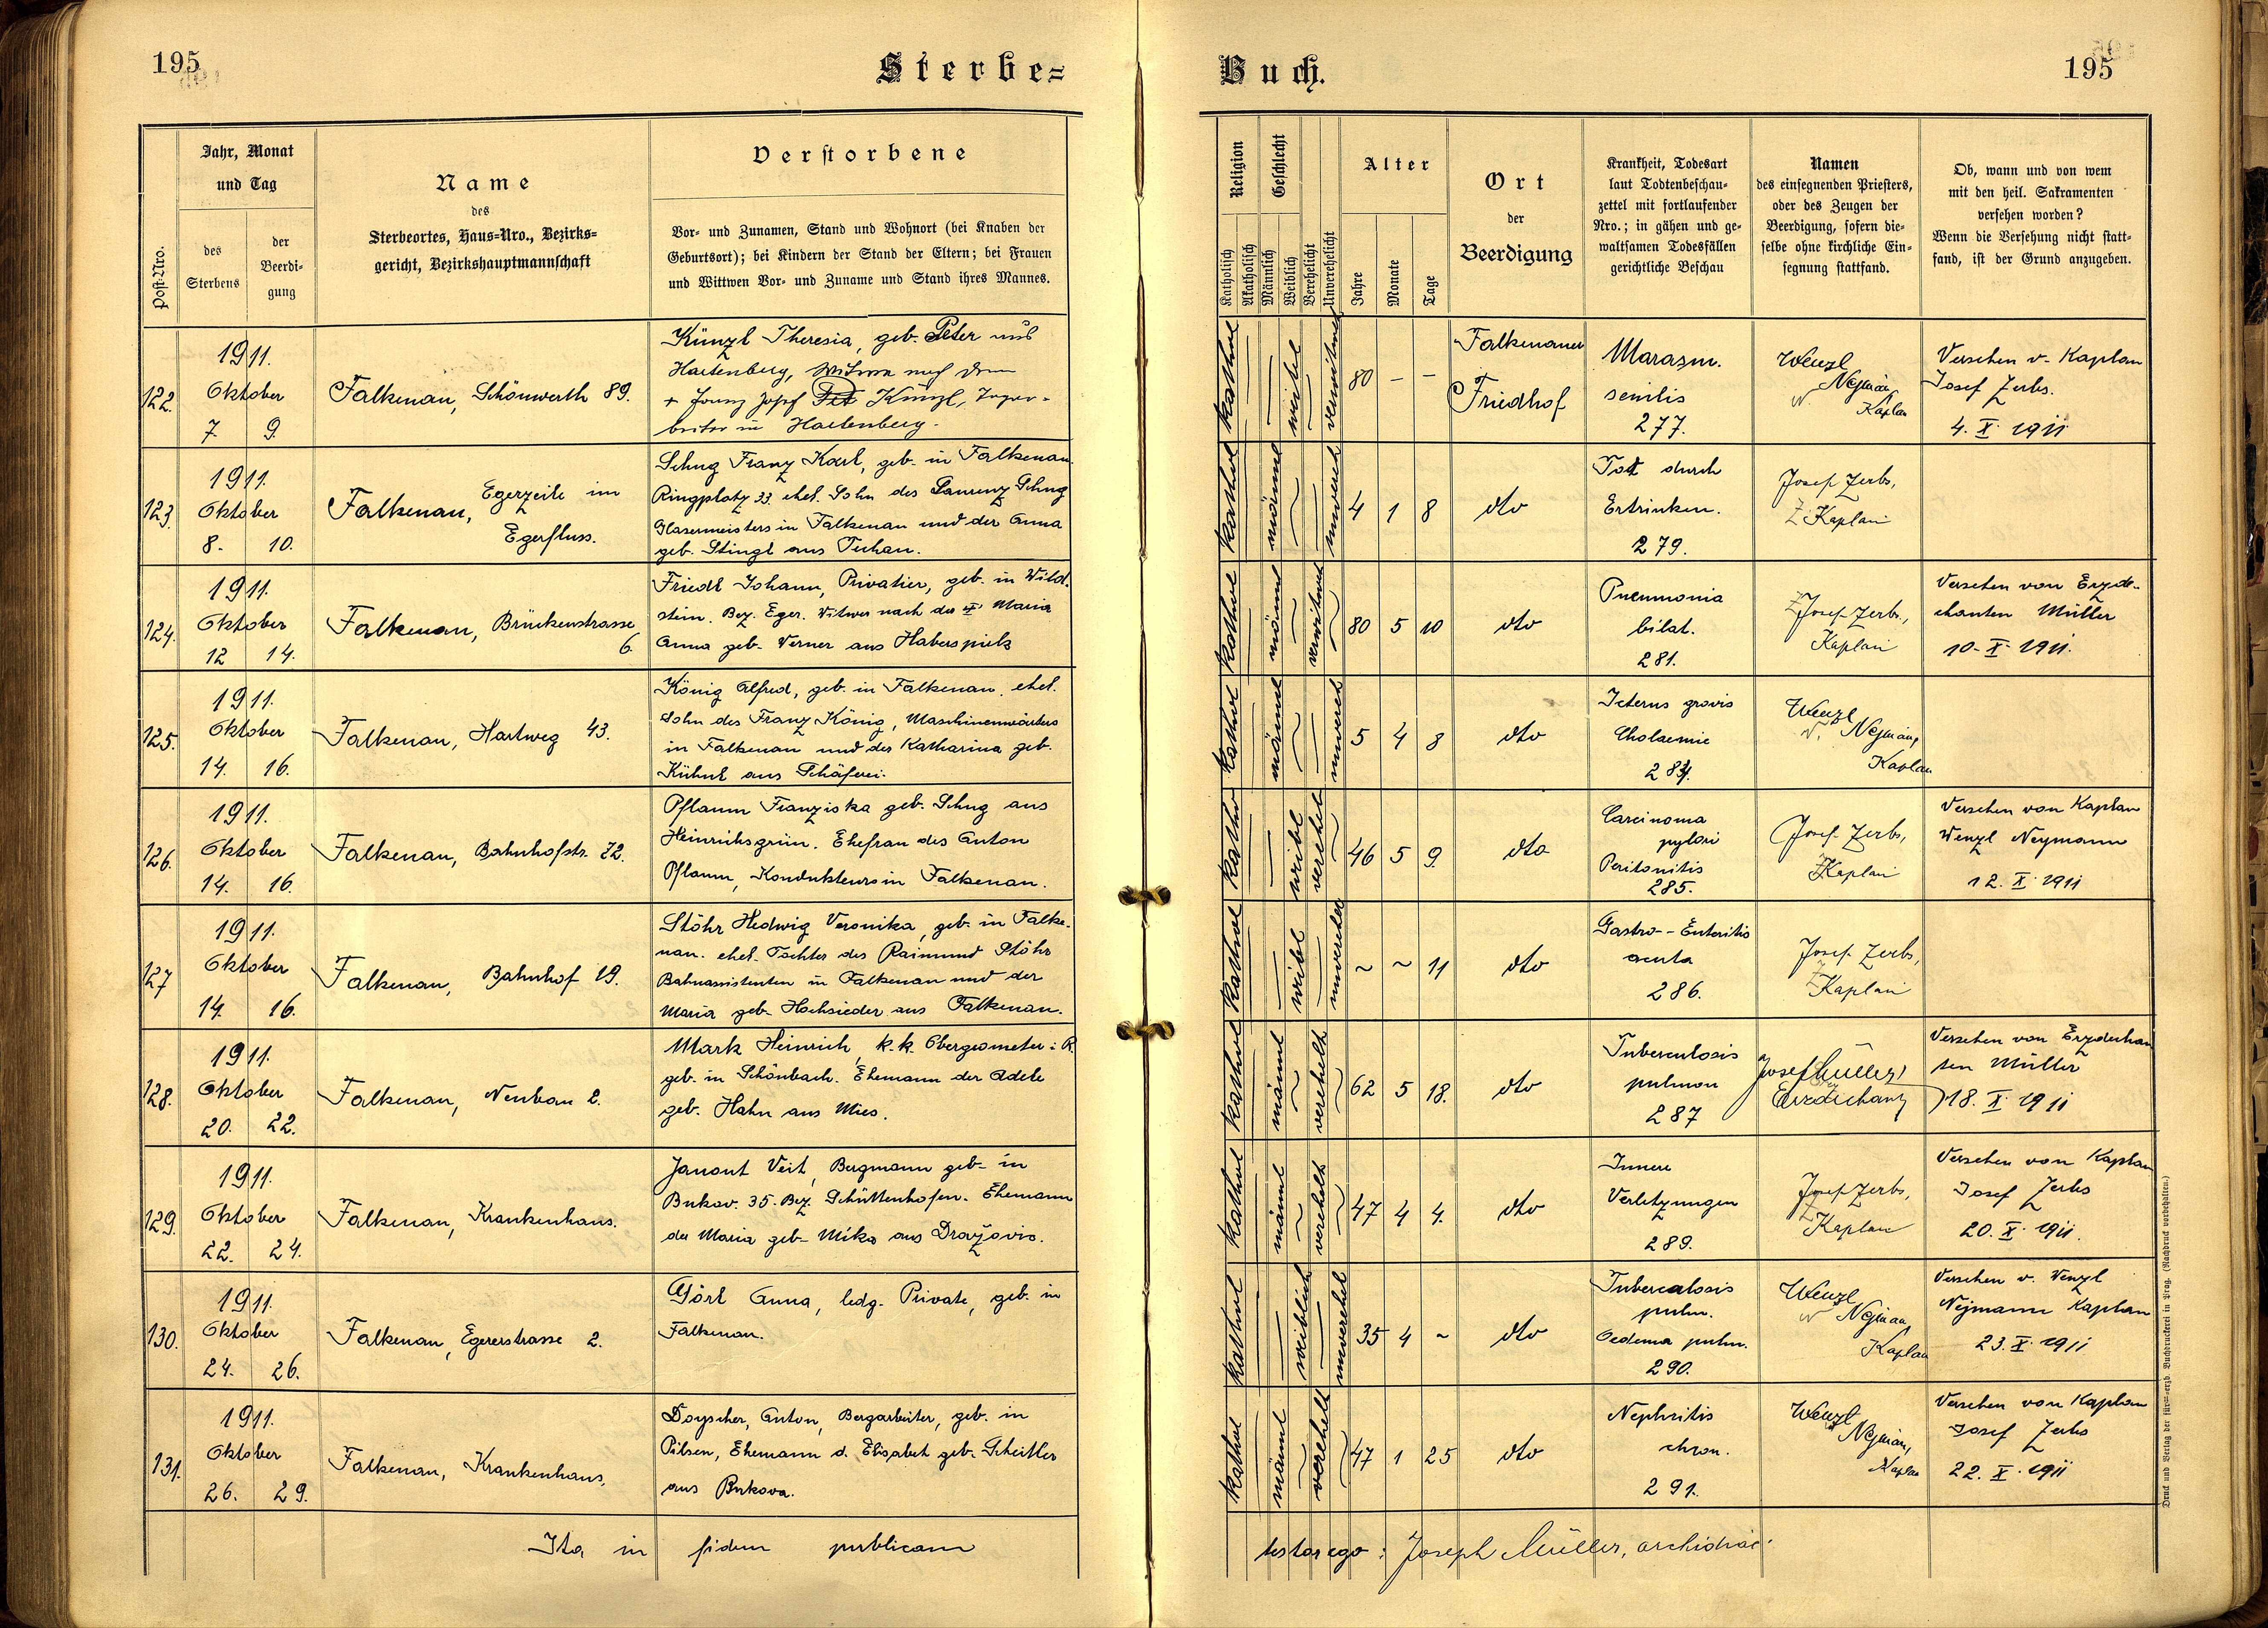 195
Sterbe=
Buch.
195
Post-Nro.
Jahr, Monat
und Tag
des
Sterbens
der
Beerdi-
gung
Name
des
Sterbeortes, Haus=Nro., Bezirks=
gericht, Bezirkshauptmannschaft
Verstorbene
Vor= und Zunamen, Stand und Wohnort (bei Knaben der
Geburtsort); bei Kindern der Stand der Eltern; bei Frauen
und Wittwen Vor= und Zuname und Stand ihres Mannes.
Religion
Katholisch
Akatholisch
Geschlecht
Männlich
Weiblich
Verehelicht
Unverehelicht
Alter
Jahre
Monate
Tage
Ort
der
Beerdigung
Krankheit, Todesart
laut Todtenbeschau=
zettel mit fortlaufender
Nro.; in gähen und ge=
waltsamen Todesfällen
gerichtliche Beschau
Namen
des einsegnenden Priesters,
oder des Zeugen der
Beerdigung, sofern die=
selbe ohne kirchliche Ein=
segnung stattfand.
Ob, wann und von wem
mit den heil. Sakramenten
versehen worden?
Wenn die Versehung nicht statt=
fand, ist der Grund anzugeben.
122.
1911.
Oktober
7. 9.
Falkenau, Schönwerth 89.
Künzl Theresia, geb. Peter aus
Hartenberg, Witwe nach dem
+ Franz Josef Künzl,
in Hartenberg.
kathol
weibel
verwitwet
80 - -
Falkenauer
Friedhof
Marasm.
senilis
277.
Wenzl
Nejman
Kaplan
Versehen v. Kaplan
Josef Zerbs.
4. X. 1911
123.
1911.
Oktober
8. 10.
Falkenau, Egerzeile im
Egerfluss.
Schug Franz Karl, geb. in Falkenau
Ringplatz 33. ehel. Sohn des Laurenz Schug
Glasermeisters in Falkenau und der Anna
geb. Stingl aus Tuhan.
kathol
männl
unvereh
4 1 8
dto
Tot durch
Ertrinken.
279.
Josef Zerbs,
Kaplan
124.
1911.
Oktober
12 14.
Falkenau, Brückenstrasse
6.
Friedl Johann, Privatier, geb. in Wild.
stein. Bez. Eger. Witwer nach der Maria
Anna geb. Werner aus Haberspirk
kathol
männl
verwitwet
80 5 10
dto
Pneumonia
bilat.
281.
Josef Zerbs,
Kaplan
Versehen von Erzde-
chanten Müller
10. X. 1911.
125.
1911.
Oktober
14. 16.
Falkenau, Hartweg 43.
König Alfred, geb. in Falkenau. ehel.
Sohn des Franz König, Maschinenwärters
in Falkenau und der Katharina geb.
Kühnl aus Schäferei.
kathol
männl
unvereh
5 4 8
dto
Icterus gravis
Cholaemie
284.
Wenzl
Nejman,
Kaplan
126.
1911.
Oktober
14. 16.
Falkenau, Bahnhofstr. 72.
Pflaum Franziska geb. Schug aus
Heinrichsgrün. Ehefrau des Anton
Pflaum, Kondukteurs in Falkenau.
kathol
weibl
verehel
46 5 9.
dto
Carcinoma
pylori
Peritonitis
285.
Josef Zerbs,
Kaplan
Versehen von Kaplan
Wenzl Neymann
12. X. 1911
127
1911.
Oktober
14. 16.
Falkenau, Bahnhof 19.
Stöhr Hedwig Veronika, geb. in Falke-
nau. ehel. Tochter des Raimund Stöhr
Bahnassistenten in Falkenau und der
Maria geb. Hochsieder aus Falkenau.
kathol
weibl
unverehel
~ ~ 11
dto
Gastro-- Enteritis
acuta
286.
Josef Zerbs,
Kaplan
128.
1911
Oktober
20. 22.
Falkenau, Neubau 2.
Mark Heinrich, k. k. Obergeometer i. R.
geb. in Schönbach. Ehemann der Adele
geb. Hahn aus Mies.
kathol
männl
verehelt
62 5 18.
dto
Tuberculosis
pulmon
287
Josef Müller,
Erzdechant
Versehen von Erzdechan
ten Müller
18. X. 1911
129.
1911.
Oktober
22. 24.
Falkenau, Krankenhaus.
Janout Veit, Bergmann geb. in
Bukov. 35. Bez. Schüttenhofen. Ehemann
der Maria geb. Mika aus Dražovic.
kathol
männl
verehelt
47 4 4.
dto
Innere
Verletzungen
289.
Josef Zerbs,
Kaplan
Versehen von Kaplan
Josef Zerbs
20. X. 1911.
130.
1911.
Oktober
24. 26.
Falkenau, Egererstrasse 2.
Görl Anna, ledg. Private, geb. in
Falkenau.
kathol
weiblich
unverehel
35 4 ~
dto
Tuberculosis
pulm.
Oedema pulm.
290.
Wenzl
Nejman,
Kaplan
Versehen v. Wenzl
Nejmann Kaplan
23. X. 1911
131.
1911.
Oktober
26. 29.
Falkenau, Krankenhaus,
Doyscher, Anton, Bergarbeiter, geb. in
Pilsen, Ehemann d. Elisabet geb. Scheitler
aus Bukova.
kathol
männl
verehelt
47 1 25
dto
Nephritis
chron.
291.
Wenzl
Nejman,
Kaplan
Versehen von Kaplan
Josef Zerbs
22. X. 1911
Ita in fidem publicam
testor ego: Joseph Müller, archidiac.
Druck und Verlag der fürst=erzb. Buchdruckerei in Prag. (Nachdruck vorbehalten.)